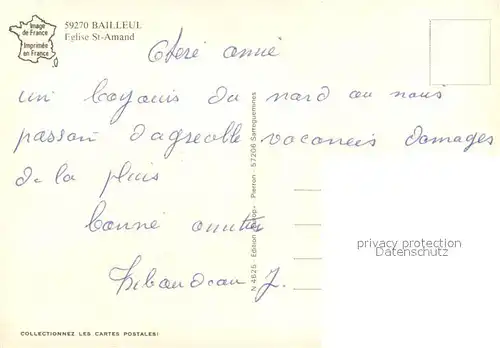 Image
de France
Imprimée
en France
59270 BAILLEUL
Eglise St-Amand
chère amie
un bayouis du nord ou nous
passon d'agreable vacances domages
de la pluis
bonne amitié
J.
N 4625 - Edition d'Europ - Pierron - 57206 Sarreguemines
privacy protecting
Datenschutz
COLLECTIONNEZ LES CARTES POSTALES!